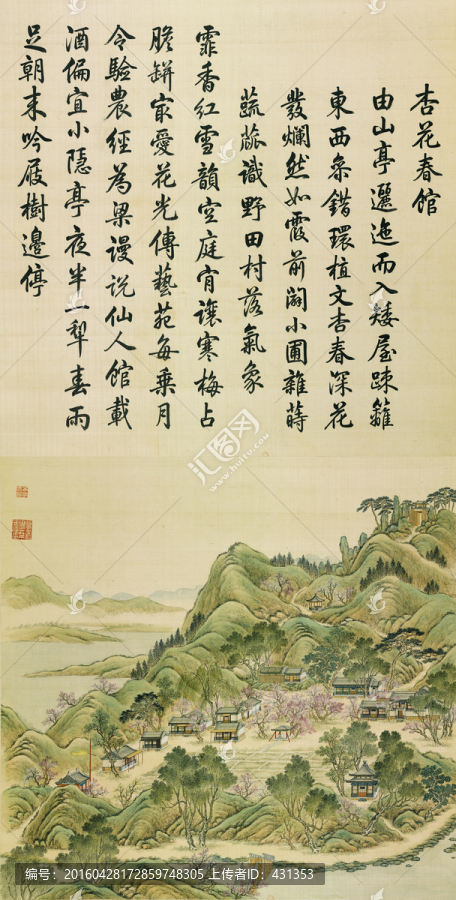 杏花春館
由山亭邐迤而入矮屋疎籬
東西叅錯環植文杏春深花
發爛然如霞前闢小圃雜蒔
蔬蓏識野田村落氣象
霏香紅雪韻空庭肯讓寒梅占
膽缾最愛花光傳藝苑每乘月
令驗農經為梁謾說仙人館載
酒偏宜小隱亭夜半一犁春雨
足朝來吟屧樹邊停
汇图网
www.huitu.com
编号:20160428172859748305 上传用户ID:431353